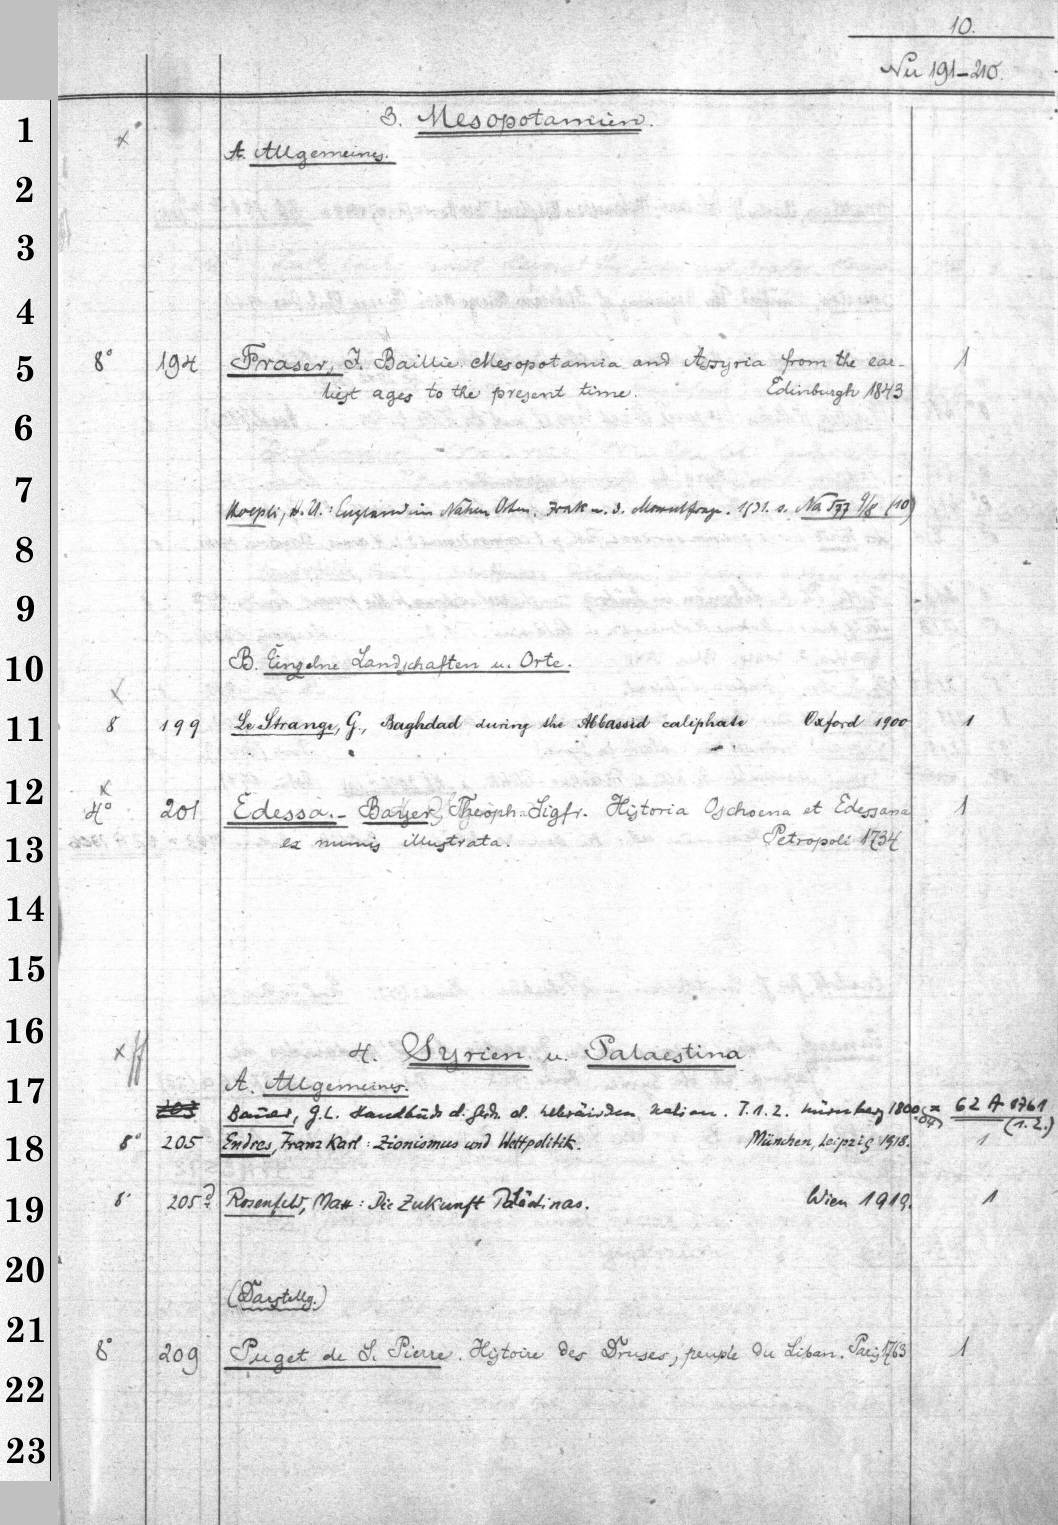 10.
Nu 191-210.
1
3. Mesopotamien.
A. Allgemeines.
2
3
4
5
8° 194 Fraser, J. Baillie. Mesopotamia and Assyria from the ear- 1
liest ages to the present time. Edinburgh 1843
6
7
Hoepli, H. U.: England im Nahen Osten. Irak u. d. Mossulfrage. 1931. s. Na 577 9/8 (10)
8
9
10
B. Einzelne Landschaften u. Orte.
11
8 199 Le Strange, G., Baghdad during the Abbassid caliphate Oxford 1900 1
12
x
4° 201 Edessa.- Bayer, Theoph. Sigfr. Historia Oschoena et Edessana 1
13
ex numis illustrata. Petropoli 1734
14
15
16
4. Syrien u. Palaestina
17
A. Allgemeines.
203 Bauer, G.L. Handbuch d. Gesch. d. hebräischen Nation. T.1.2. Nürnberg 1800 62 A 1761
(1.2.)
18
8° 205 Endres, Franz Karl: Zionismus und Weltpolitik. München, Leipzig 1918. 1
19
8° 205a Rosenfeld, Max: Die Zukunft Palästinas. Wien 1919. 1
20
(Darstellg.)
21
8° 209 Puget de S. Pierre. Histoire des Druses, peuple du Liban. Paris 1763 1
22
23